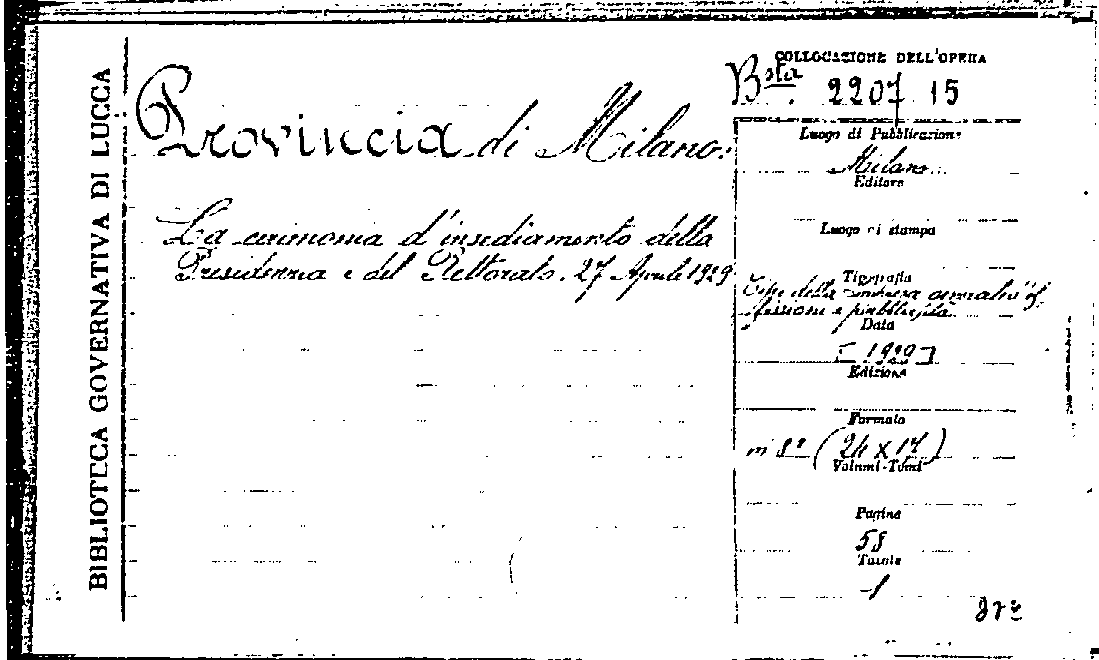 BIBLIOTECA GOVERNATIVA DI LUCCA
Provincia di Milano.
La cerimonia d'insediamento della
Presidenza e del Rettorato. 27 Aprile 1929
COLLOCAZIONE DELL'OPERA
Bsta. 2207 15
Luogo di Pubblicazione
Milano
Editore
Luogo di stampa
Tipografia
Tip. della
e pubblicità
Data
[1929]
Edizione
Formato
in 8º (24 x 17)
Volumi-Tomi
Pagine
58
Tavole
1